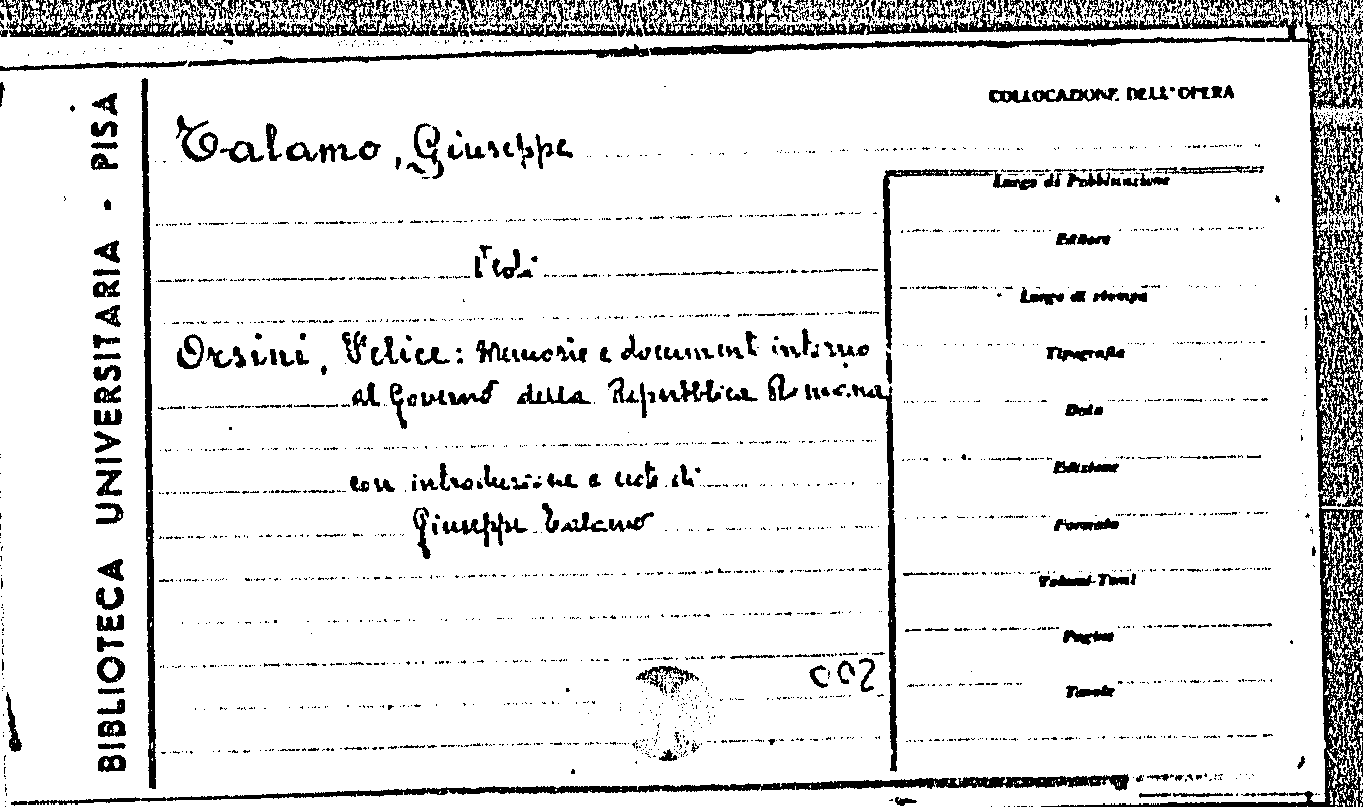 BIBLIOTECA UNIVERSITARIA - PISA
COLLOCAZIONE DELL'OPERA
Talamo, Giuseppe
Luogo di Pubblicazione
Editore
Vedi
Luogo di stampa
Orsini, Felice: Memorie e documenti intorno
Tipografia
al Governo della Repubblica Romana
Data
Edizione
con introduzione e note di
Giuseppe Talamo
Formato
Volumi-Tomi
Pagine
002
Tavole